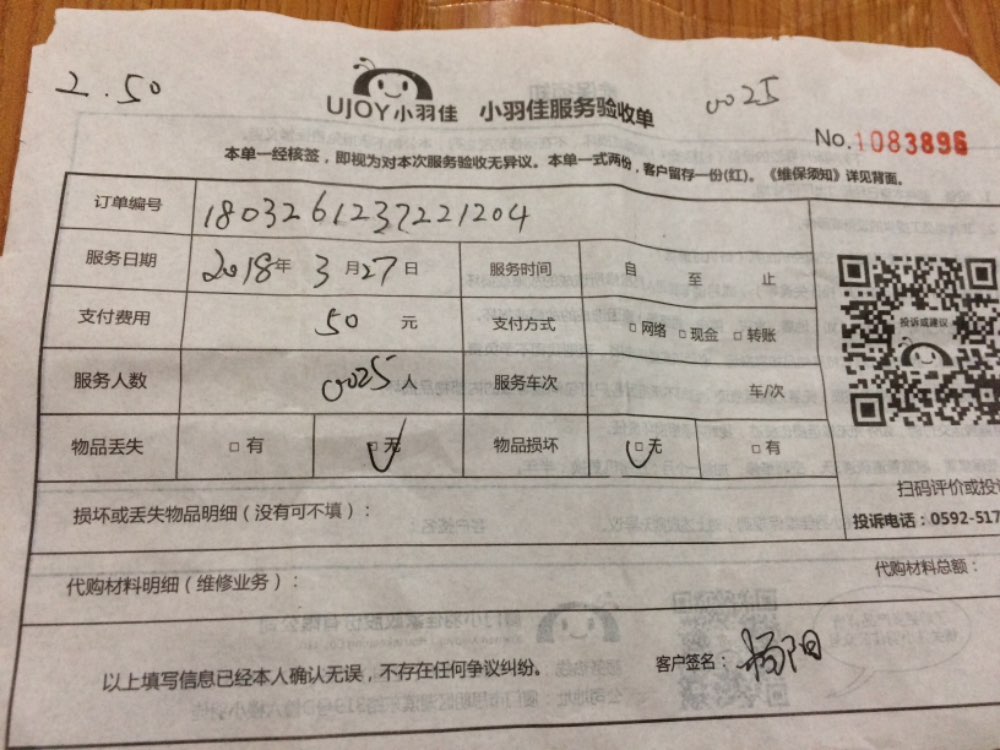 2.50
UJOY小羽佳 小羽佳服务验收单
0025
No.1083896
本单一经核签，即视为对本次服务验收无异议。本单一式两份，客户留存一份(红)。《维保须知》详见背面。
订单编号 1803261237221204
服务日期 2018年 3月27日 服务时间 自 至 止
支付费用 50 元 支付方式 □网络 □现金 □转账
服务人数 0025 人 服务车次 车/次
物品丢失 □有 □无 物品损坏 □无 □有
投诉或建议
扫码评价或投诉
损坏或丢失物品明细（没有可不填）：
投诉电话：0592-517
代购材料明细（维修业务）： 代购材料总额：
以上填写信息已经本人确认无误，不存在任何争议纠纷。 客户签名：杨阳